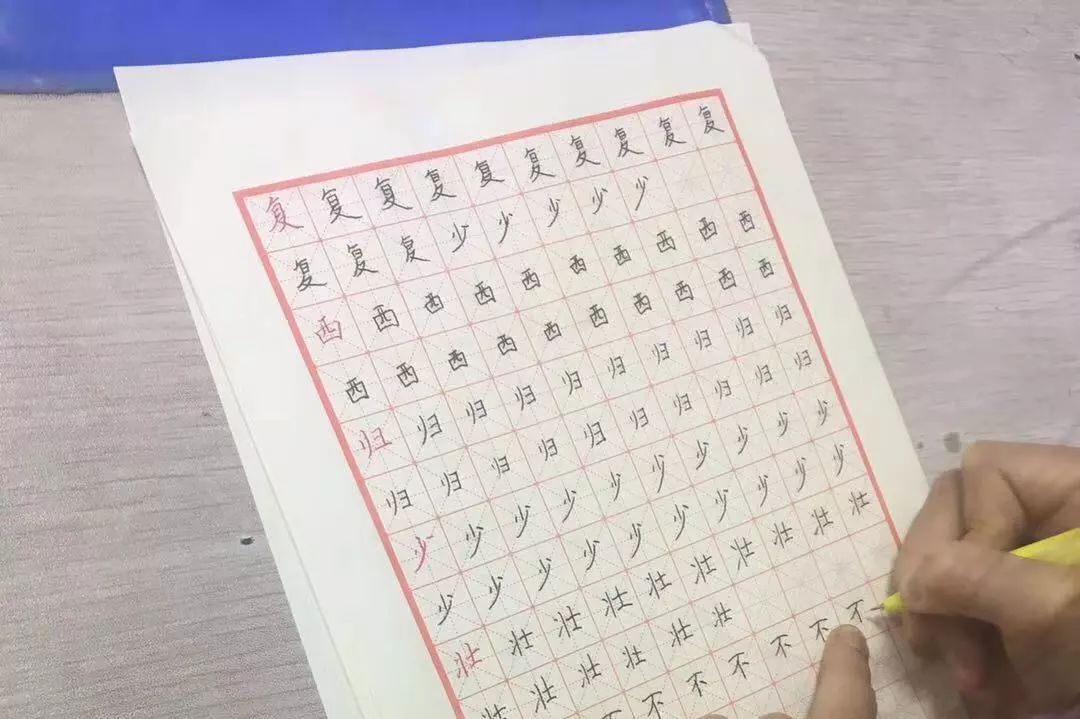 复复复复复复复复复复
复复复少少少少少
西西西西西西西西西西
西西西西西西西西西西
归归归归归归归归归归
归归归归归归归归归归
少少少少少少少少少少
少少少少少少少少少少
壮壮壮壮壮壮壮壮壮壮
壮壮壮壮壮壮
不不不不不不不